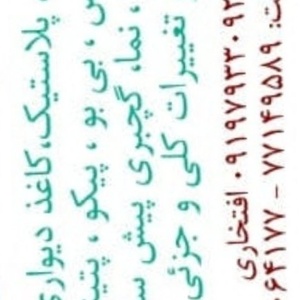 پلاستیک،کاغذ دیواری
، بی بو ، پیکو ، پتینه
، نما، گچبری پیش س
تغییرات کلی و جزئی
۰۹۱۹۷۹۳۳۰۹۲ افتخاری
ت: ۷۷۱۴۹۵۸۹ – ۶۴۱۷۷